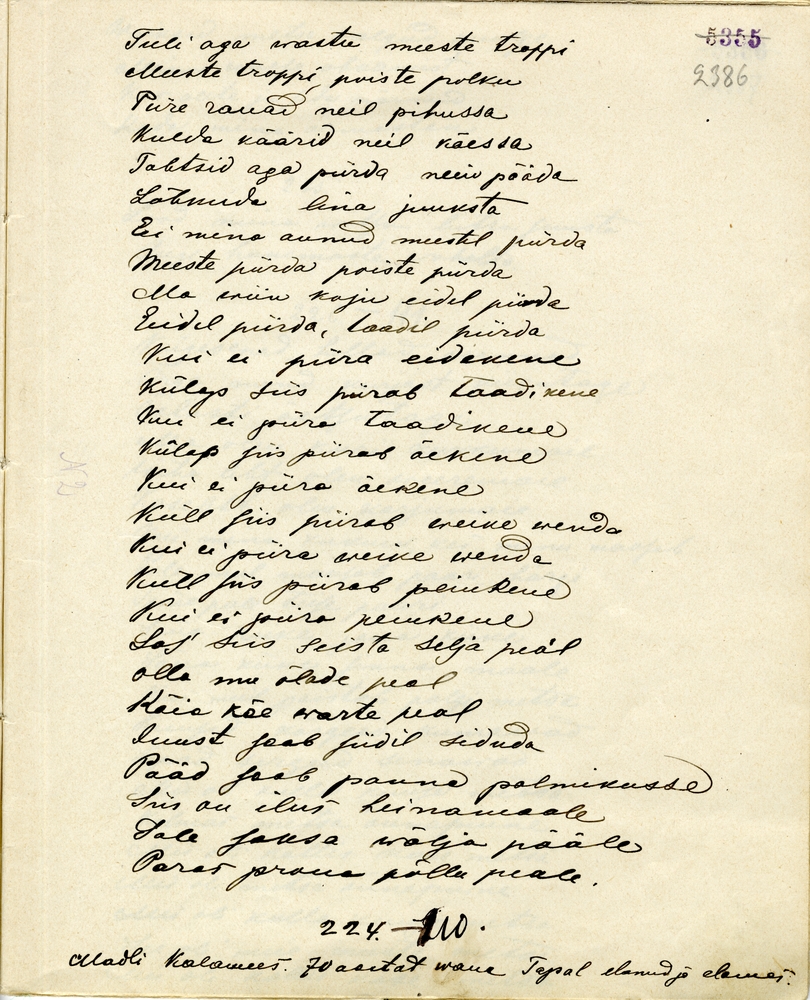 5355
2386
Tuli aga wastu meeste troppi
Meeste troppi, poiste polku
Piire rauad neil pihussa
Kulda käärid neil käessa
Tahtsid aga piirda neiu pääda
lina juuksta
Ei mina annud meestel piirda
Meeste piirda poiste piirda
Ma wiin koju eidel piirda
Eidel piirda, taadil piirda
Kui ei piira eidekene
Külap siis piirab taadikene
Kui ei piira taadikene
Külap siis piirab õekene
Kui ei piira õekene
Küll siis piirab weike wenda
Kui ei piira weike wenda
Küll siis piirab peiukene
Kui ei piira peiukene
Las' siis seista selja peal
Olla mu õlade peal
Käia käe warte peal
Juust saab siidil siduda
Pääd saab panna palmikusse
Siis on ilus heinamaale
Tale saksa wälja pääle
Paras proua põllu peale.
224.
Madli Kalamees. 70 aastat wana Tapal elanud ja elames.